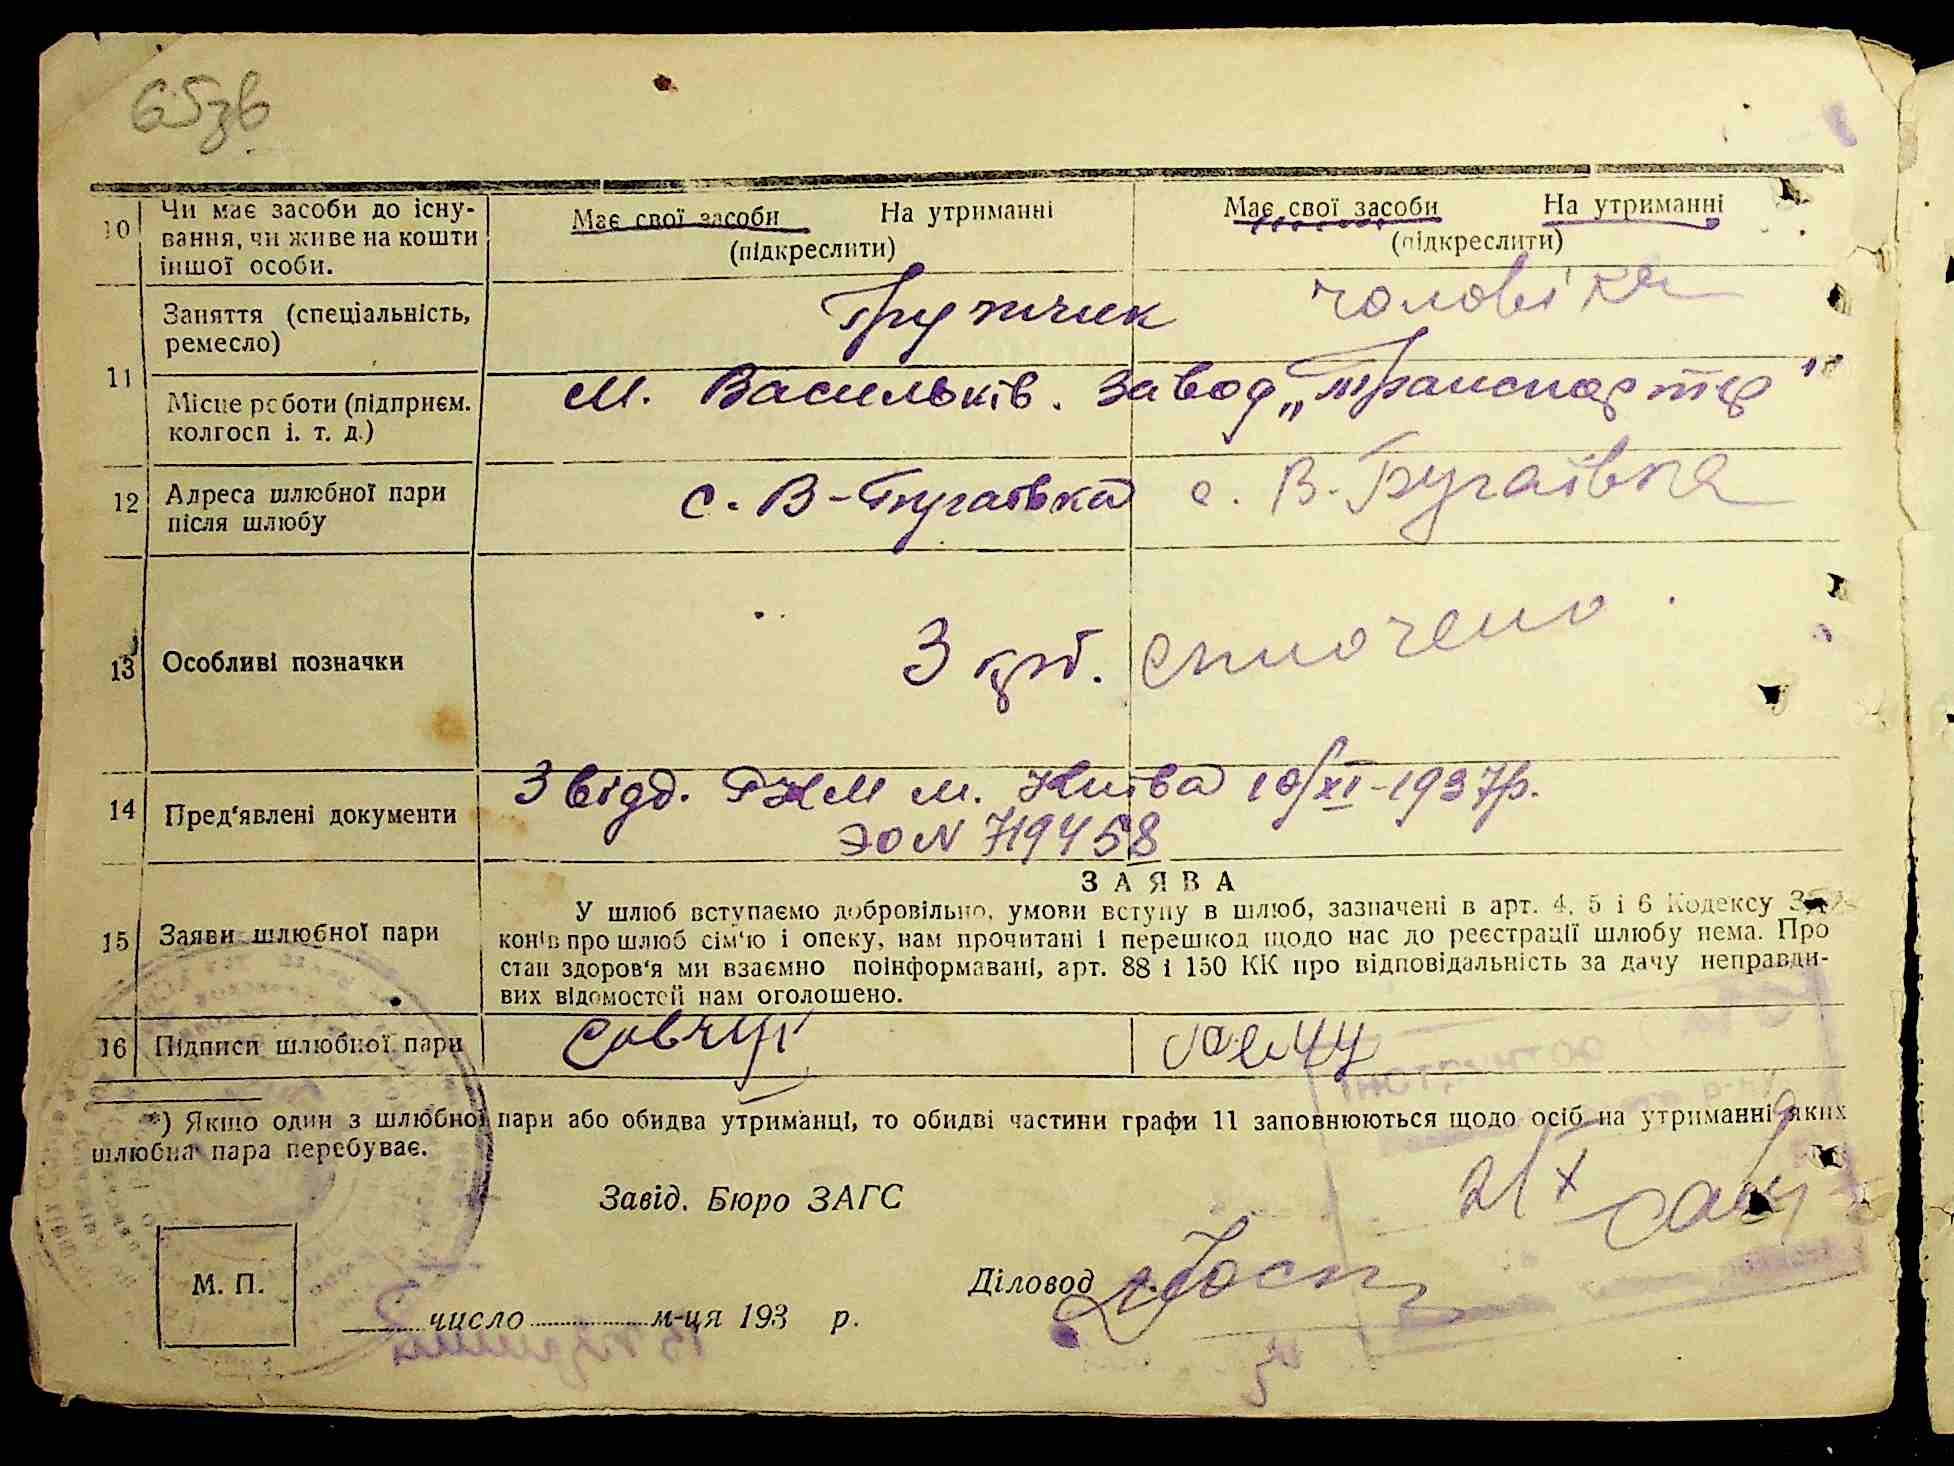 65зв
10 Чи має засоби до існу-
вання, чи живе на кошти
іншої особи.
Має свої засоби На утриманні
(підкреслити)
Має свої засоби На утриманні
(підкреслити)
11 Заняття (спеціальність,
ремесло)
чоловіка
Місце роботи (підприєм.
колгосп і. т. д.)
м. Васильків. Завод „Транспортер"
12 Адреса шлюбної пари
після шлюбу
с. В-Бугаївка
с. В. Бугаївка
13 Особливі позначки
3 крб. сплочено
14 Пред'явлені документи
3 відд. РКМ м. Київа 10/XI-1937р.
ЭО N 719458
15 Заяви шлюбної пари
ЗАЯВА
У шлюб вступаємо добровільно, умови вступу в шлюб, зазначені в арт. 4, 5 і 6 Кодексу За-
конів про шлюб сім'ю і опеку, нам прочитані і перешкод щодо нас до реєстрації шлюбу нема. Про
стан здоров'я ми взаємно поінформавані, арт. 88 і 150 КК про відповідальність за дачу неправди-
вих відомостей нам оголошено.
16 Підписи шлюбної пари
Савчук
*) Якщо один з шлюбної пари або обидва утриманці, то обидві частини графи 11 заповнюються щодо осіб на утриманні яких
шлюбна пара перебуває.
Завід. Бюро ЗАГС
Діловод
М. П.
число м-ця 193 р.